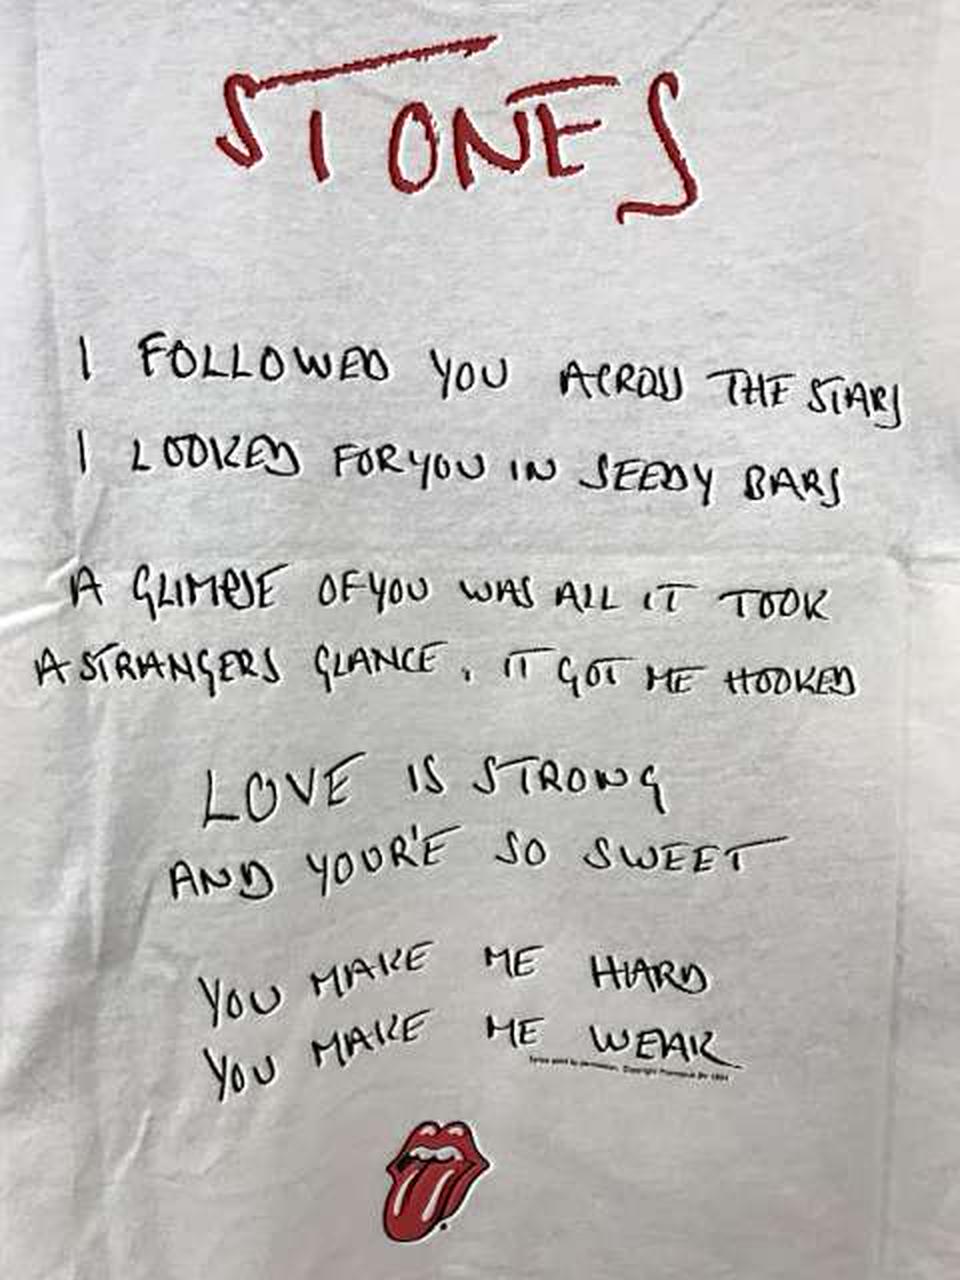 STONES
I FOLLOWED YOU ACROSS THE STARS
I LOOKED FOR YOU IN SEEDY BARS
A GLIMPSE OF YOU WAS ALL IT TOOK
A STRANGERS GLANCE, IT GOT ME HOOKED
LOVE IS STRONG
AND YOUR'E SO SWEET
YOU MAKE ME HARD
YOU MAKE ME WEAK
Lyrics used by permission. Copyright Promopub BV 1994